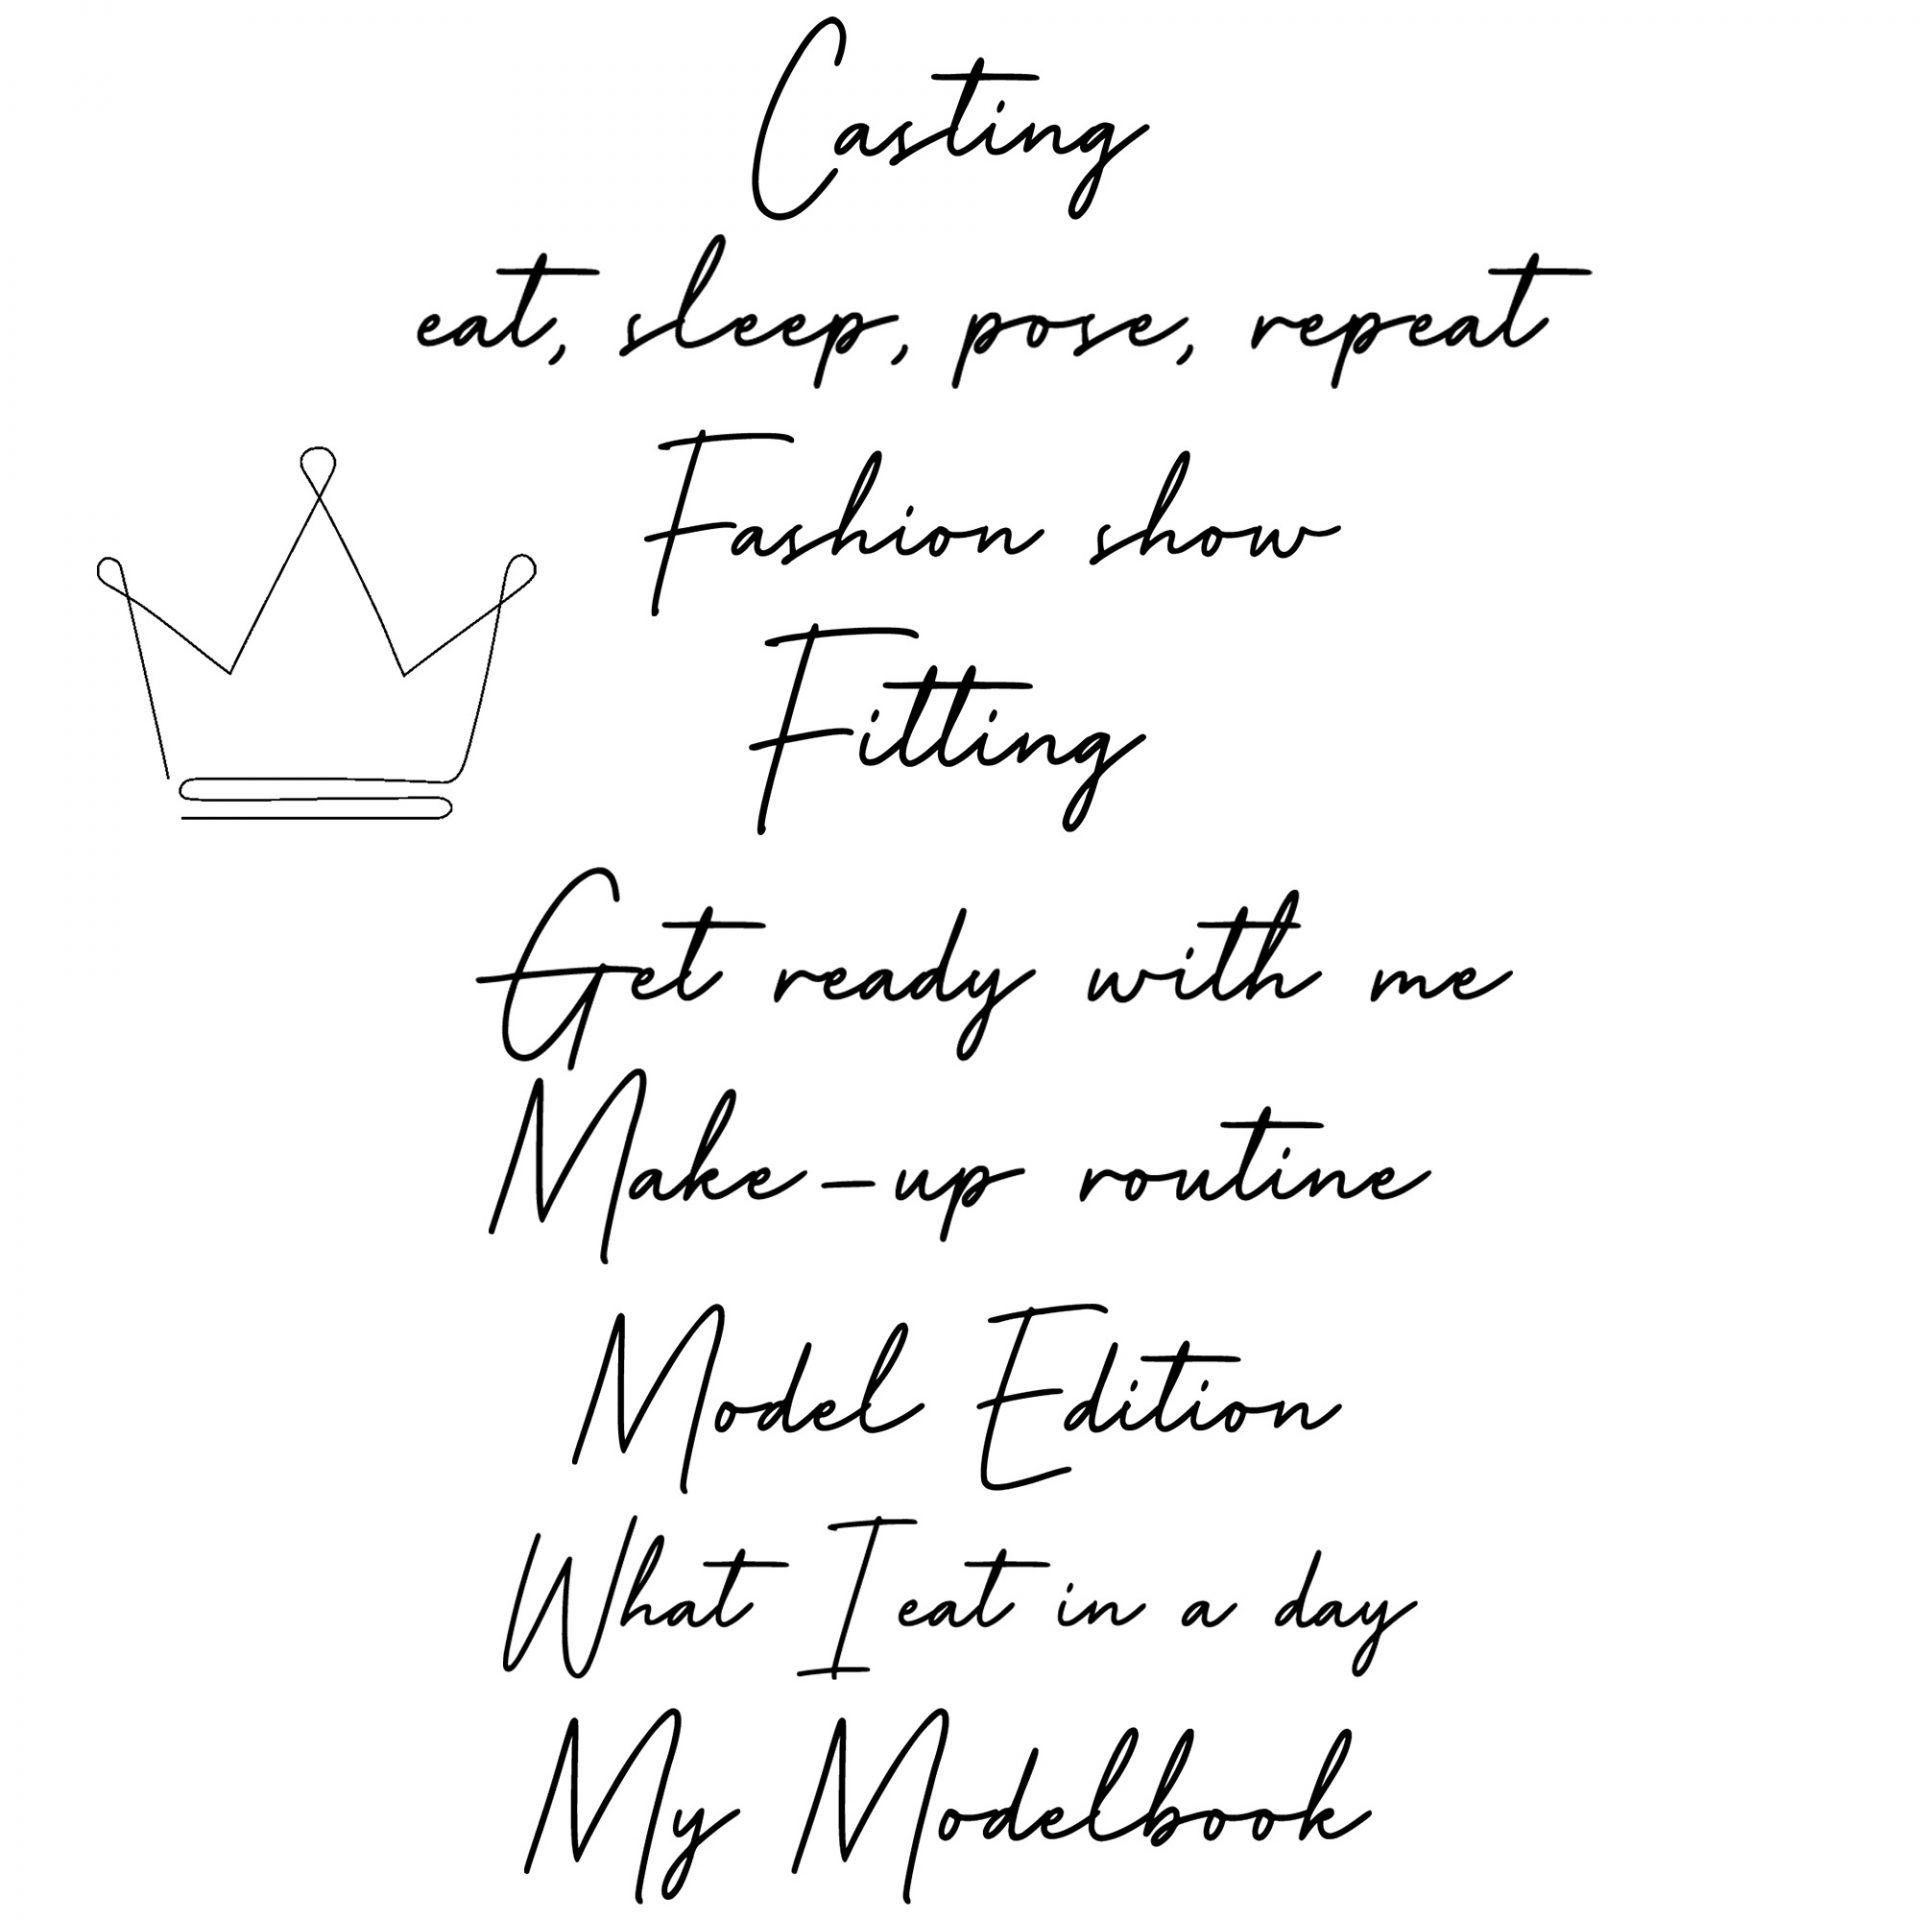 Casting
eat, sleep, pose, repeat
Fashion show
Fitting
Get ready with me
Make-up routine
Model Edition
What I eat in a day
My Modelbook